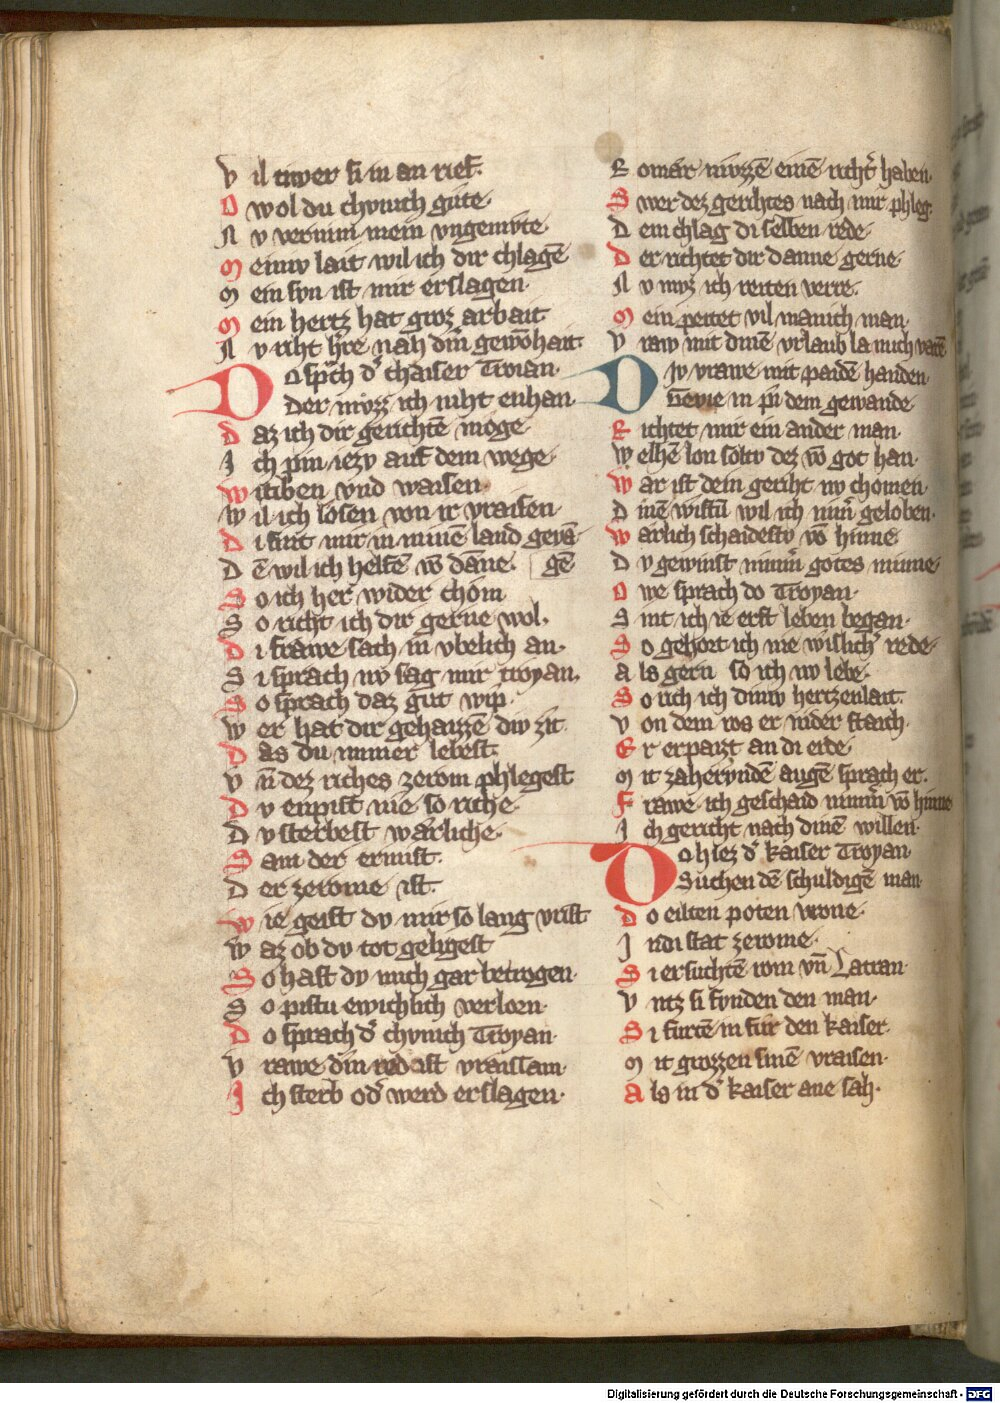 V il tiwer si in an rief.
O wol du chvnich gůte.
N v vernim mein vngemvte
M einw lait wil ich dir chlagē
M ein svn ist mir erslagen.
M ein hertz hat groz arbait
N v riht h're nah dim̄ gewōhait
D o sp̄ch d' chaiser Troian.
Der mvzz ich niht enhan
D az ich dir gerichtē moge
I ch pin iezv auf dem wege.
W itiben vnd waisen
W il ich losen von ir vraisen
D i sint mir in minē land gevā
D ē wil ich helfē vō dāne. gē
S o ich her wider chom
S o richt ich dir gerne wol.
D i frawe sach in vbelich an.
S i sprach nv sag mir troyan.
S o sprach daz gut wip.
W er hat dir gehaizzē diw zit
D as du immer lebest.
V n̄ dez riches zerom phlegest
D v enpist nie so riche
D v sterbest wārliche.
S am der ernust.
D er zerome ist.
W ie geist dv mir so lang vrist
W az ob dv tot geligest
S o hast dv mich gar betrogen.
S o pistu ewichlich verlorn.
D o sprach d' chvnich Troyan.
V rawe din red ist vraissam.
I ch sterb od' werd erslagen.
R omar mvzzē einē richt' haben.
S wer dez gerihtes nach mir phleg.
D ein chlag di selben rede
D er richtet dir danne gerne
N v mvz ich reiten verre.
M ein peitet vil manich man.
V raw mit dinē vrlaub la mich varē
D iv vrawe mit paidē handen
Gevie in pī dem gewande
R ichtet mir ein ander man
W elhē lon soltv dez vō got han.
W ar ist dein geriht nv chomen
D inē wistū wil ich nim̄ geloben.
W ārlich schaidestv vō hinne.
D v gewinst nimm̄ gotes minne
O we sprach do Troyan.
S int ich ie erst leben began.
S o gehort ich nie wislich' rede.
A ls gern so ich nv lebe.
S o rich ich dinw hertzenlait.
V on dem ros er nider staich.
E r erpaizt an di erde
M it zahervndē augē sprach er.
F rawe ich geschaid nimm̄ vō hinne
I ch gericht nach dinē willen.
D o hiez d' kaiser Troyan
Suchen dē schuldigē man
D o eilten poten vrone.
I n di stat zerome.
S i ersuchtē rom vn̄ Latran.
V ntz si fvnden den man.
S i fůrtē in fůr den kaiser.
M it grozzen sinē vraisen.
A ls in d' kaiser ane sah.
Digitalisierung gefördert durch die Deutsche Forschungsgemeinschaft - DFG